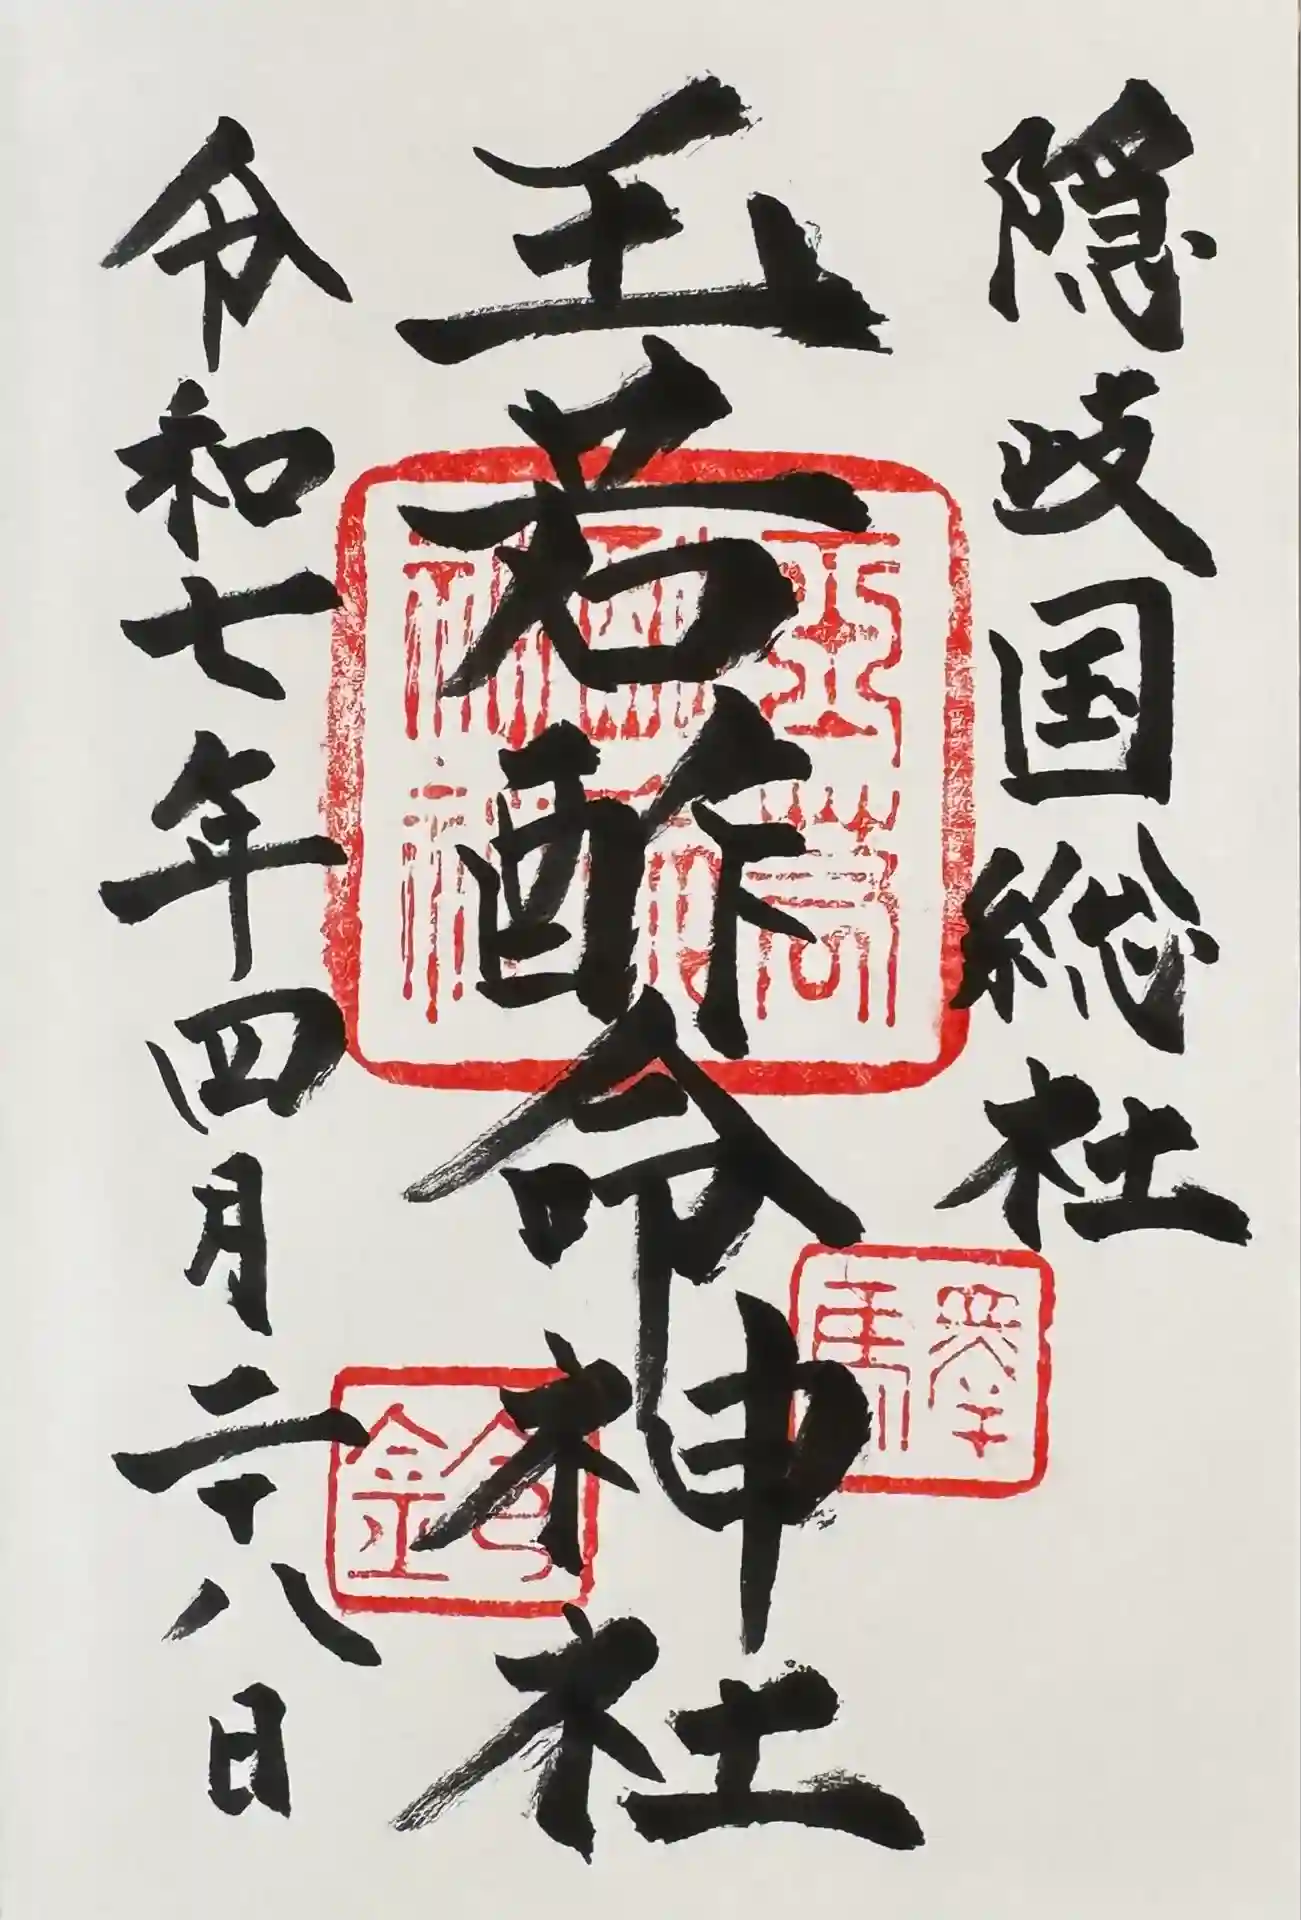 隠岐国総社
玉若酢命神社
令和七年四月二十八日
玉若
酢命
神社
驛
鈴